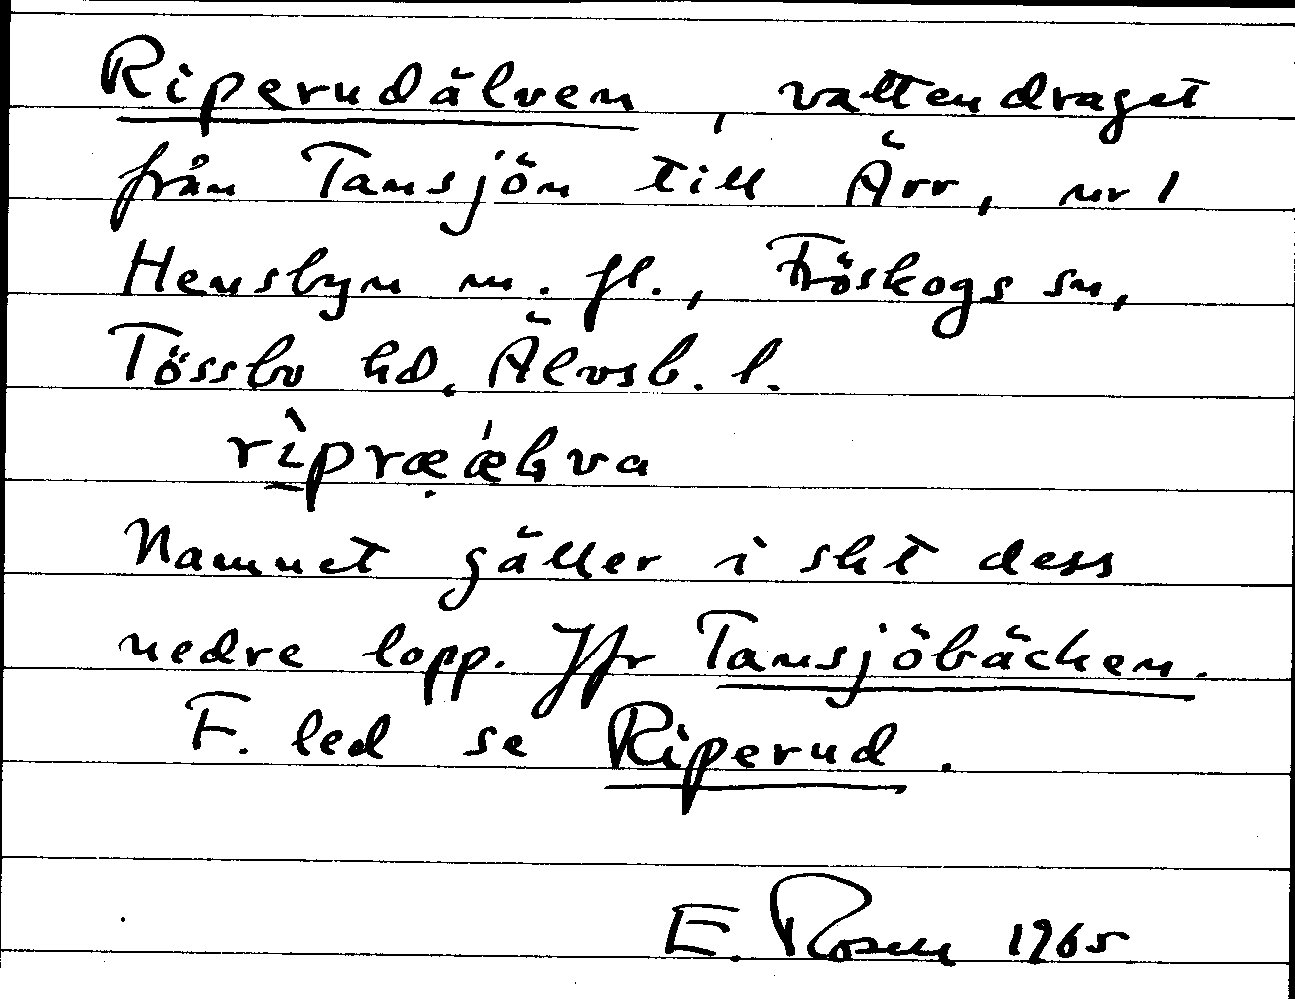 Riperudälven, vattendraget
från Tansjön till Ärr, nr 1
Hensbyn m. fl., Fröskogs sn,
Tössbo hd, Älvsb. l.
Namnet gäller i sht dess
nedre lopp. Jfr Tansjöbäcken.
F. led se Riperud.
E. Rosén 1965